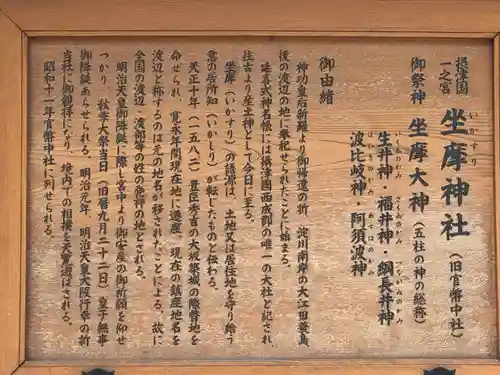 摂津国
一之宮
いかすり
坐摩神社
（旧官幣中社）
御祭神
坐摩大神
（五柱の神の総称）
いくゐのかみ さくゐのかみ つながゐのかみ
生井神・福井神・綱長井神
はひきのかみ あすはのかみ
波比岐神・阿須波神
御由緒
神功皇后新羅より御帰還の折、淀川南岸の大江田蓑島
後の渡辺の地に奉祀せられたことに始まる。
延喜式神名帳には摂津國西成郡の唯一の大社と記され
往古より産土神として今日に至る。
坐摩（いかすり）の語源は、土地又は居住地を守り給う
意の居所知（いかしり）が転じたものと伝わる。
天正十年（一五八二）豊臣秀吉の大坂築城の際替地を
命ぜられ、寛永年間現在地に遷座、現在の鎮座地名を
渡辺と称するのは元の地名が移されたことによる。故に
全国の渡辺・渡部等の姓の発祥の地とされる。
明治天皇御降誕に際し宮中より御安産の御祈願を仰せ
つかり、秋季大祭当日（旧暦九月二十二日）皇子無事
御降誕あらせられる。明治元年、明治天皇大阪行幸の折
当社に御親拝になり、境内での相撲を天覧遊ばされる。
昭和十一年官幣中社に列せられる。